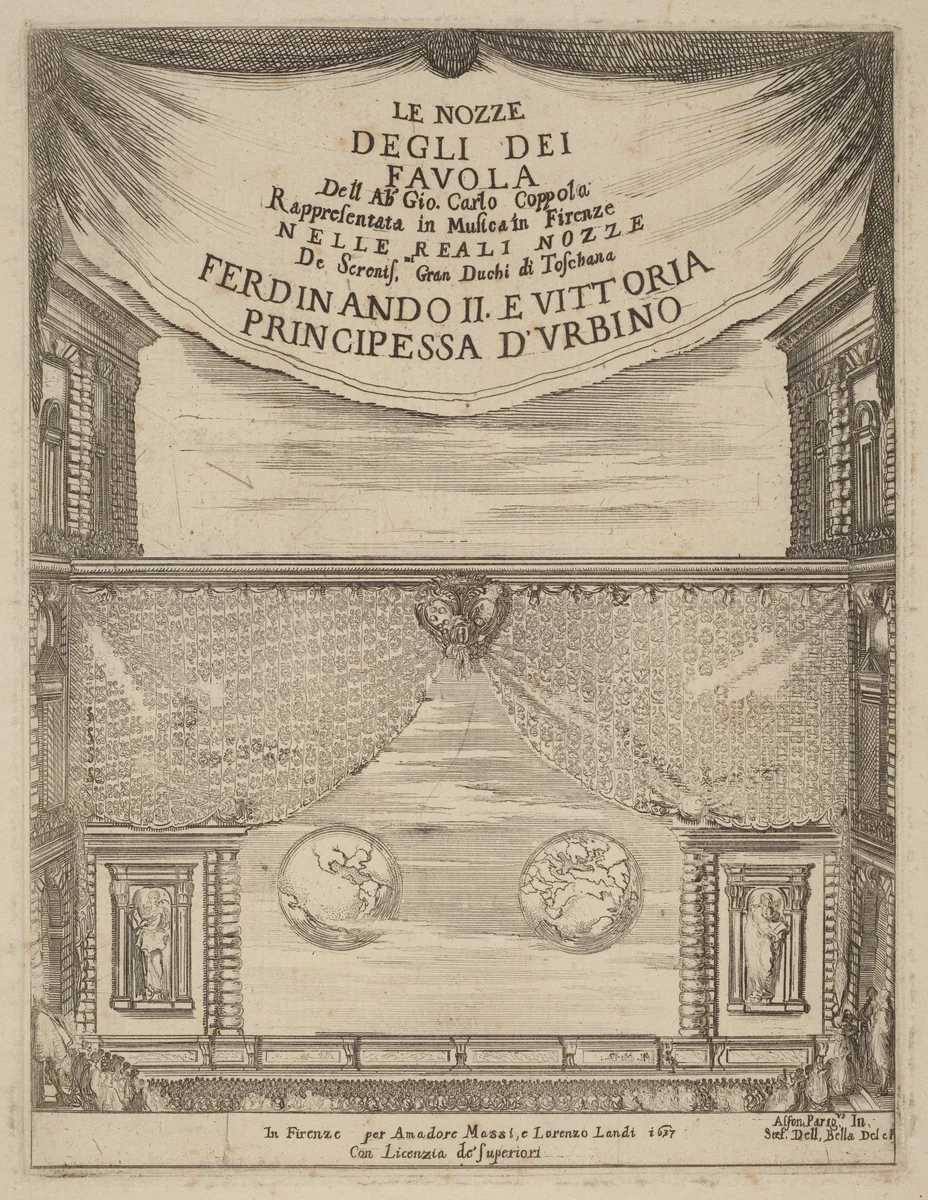 LE NOZZE
DEGLI DEI
FAVOLA
Dell Ab Gio. Carlo Coppola
Rappreſentata in Muſica in Firenze
NELLE REALI NOZZE
De Sereniſ,mi Gran Duchi di Toſchana
FERDINANDO II. E VITTORIA
PRINCIPESSA D'VRBINO
In Firenze per Amadore Massi, e Lorenzo Landi 1637
Con Licenzia de' ſuperiori
Alfon, Parig,vs In,
Stef. Dell, Bella Del e F